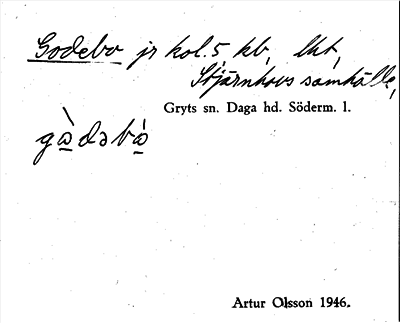 Godebo jr kol. 5, kb, lht,
Stjärnhovs samhälle,
Gryts sn. Daga hd. Söderm. l.
gàdəbá
Artur Olsson 1946.